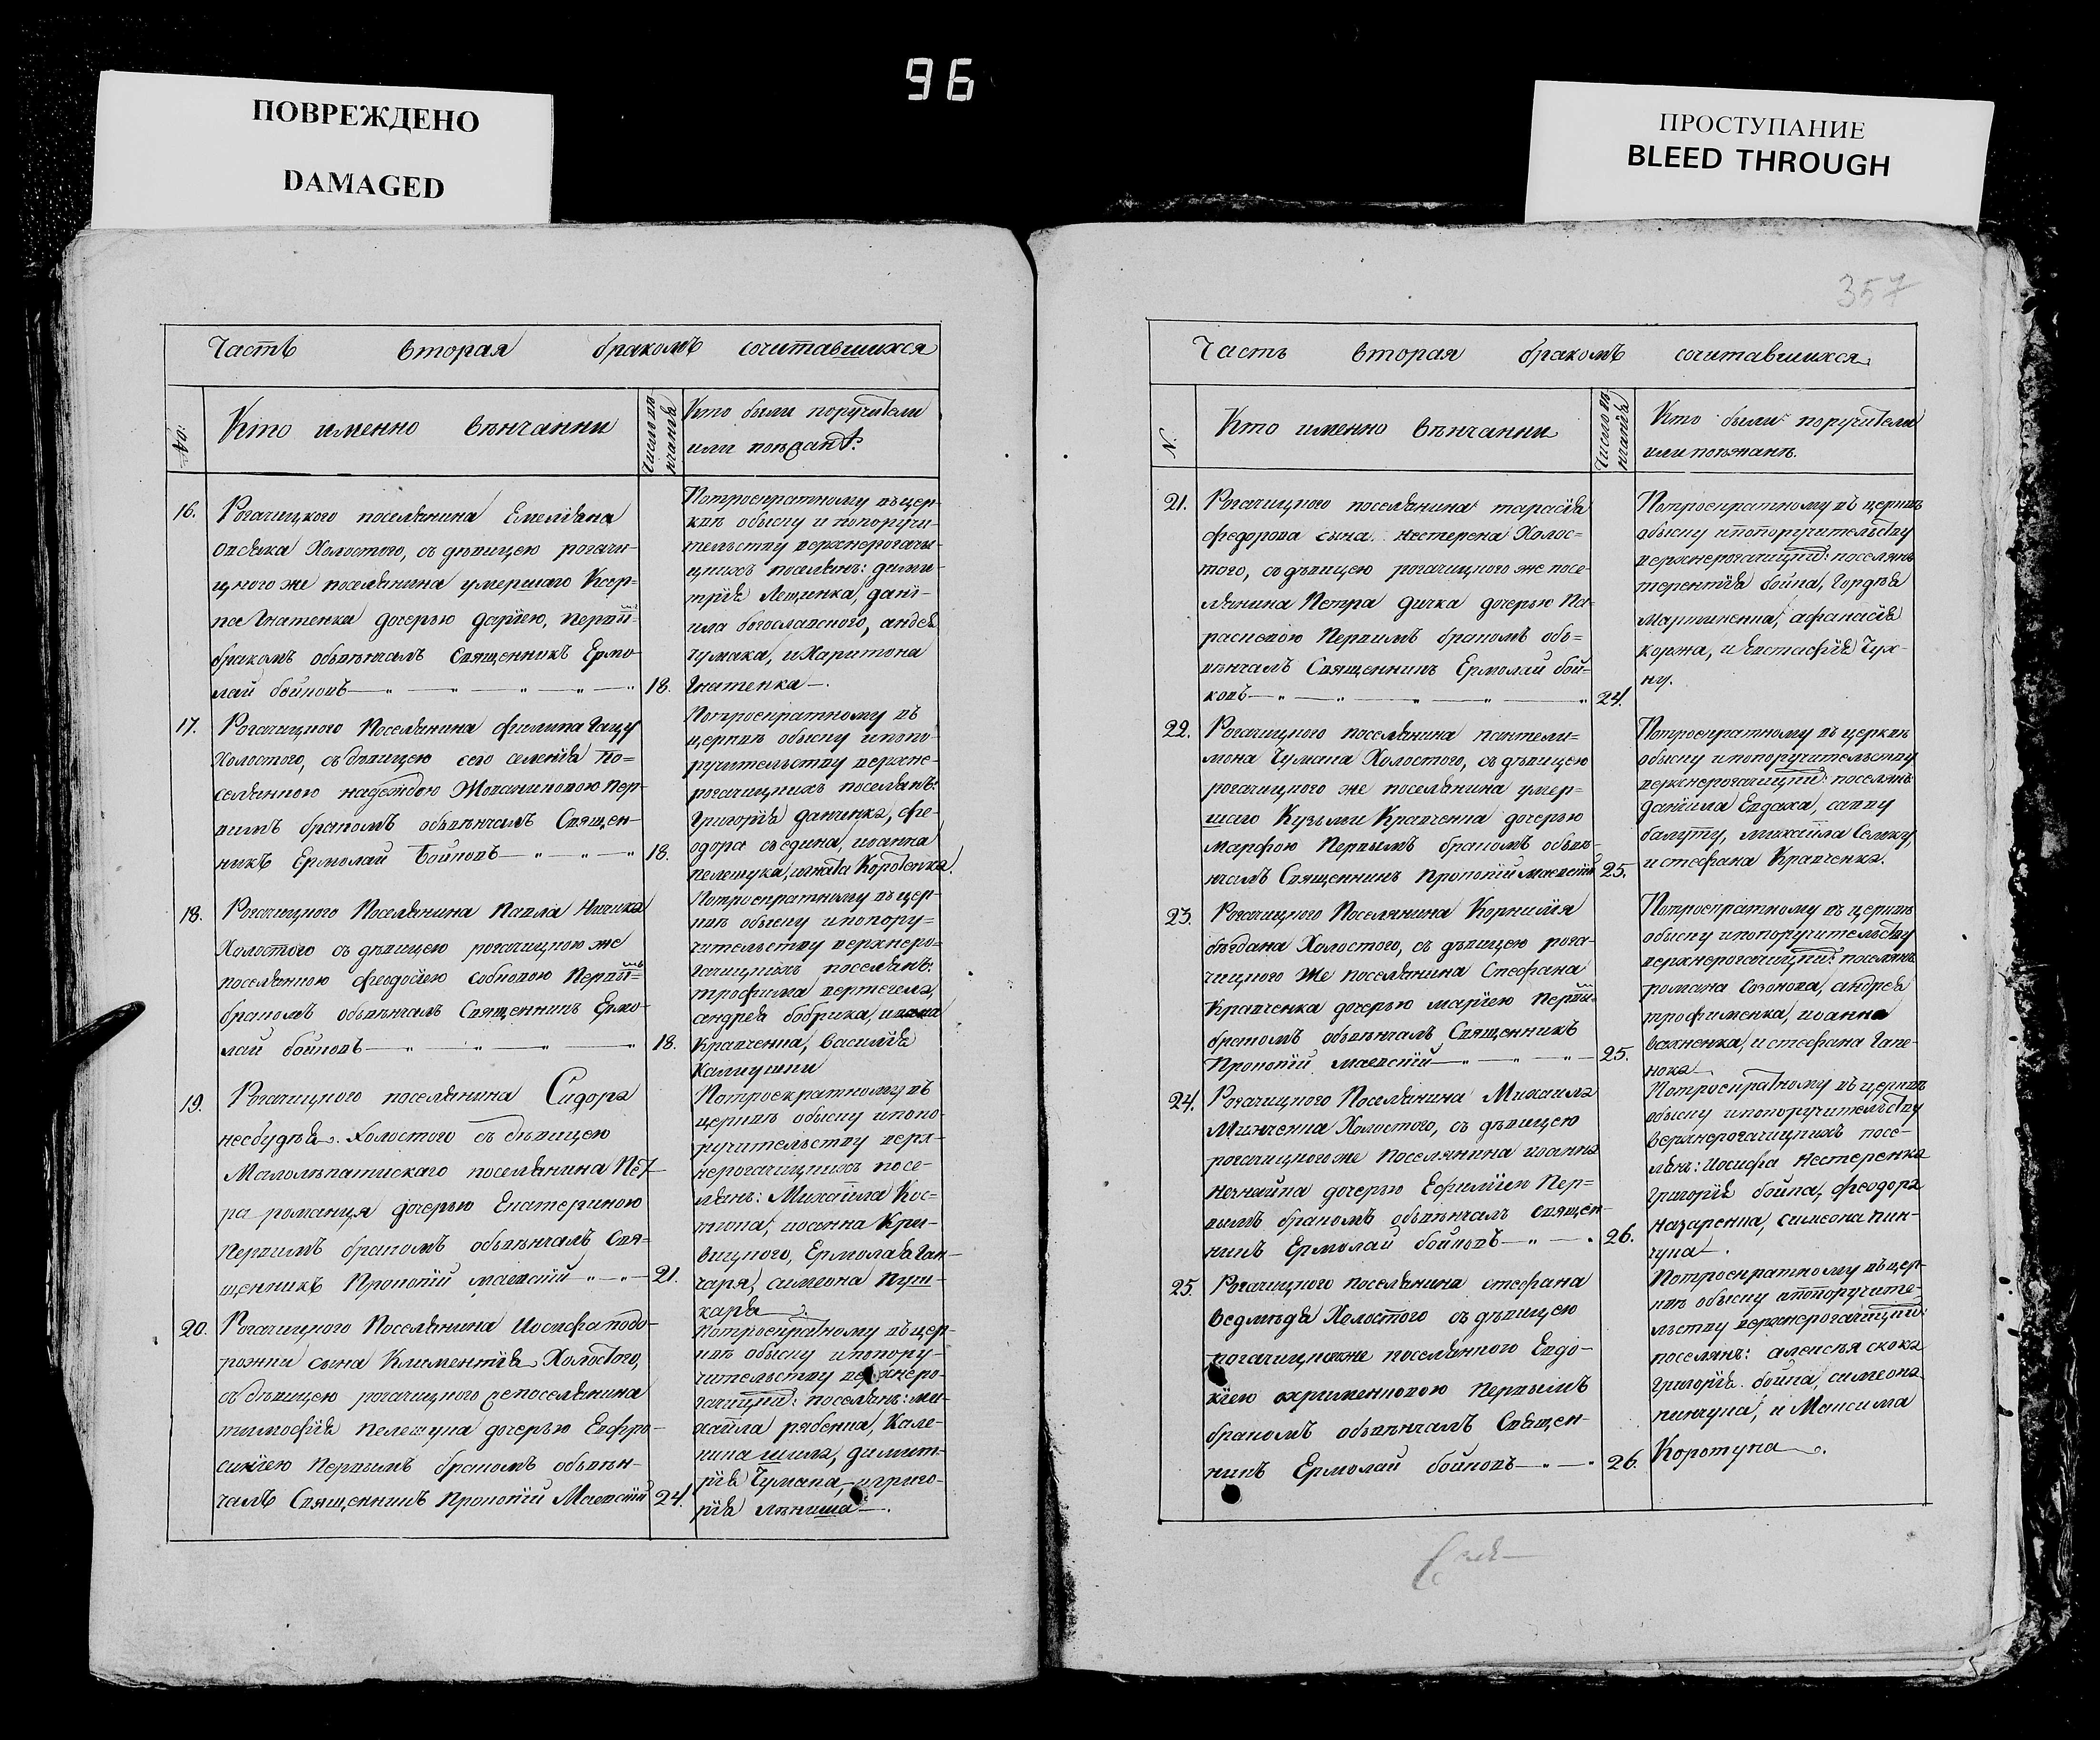 96
ПОВРЕЖДЕНО
DAMAGED
ПРОСТУПАНИЕ
BLEED THROUGH
Часть вторая бракомъ сочитавшихся
No.
Кто именно вѣнчанни
Число вѣнчанія
Кто были поручители
или поѣзданѣ.
16.
Рогачицкого поселянина Емеліана
холостого, съ дѣвицею рогачи-
цкого же поселянина умершаго Кар-
па Гнатенка дочерью даріею, первы-
бракомъ обвѣнчалъ Священникъ Ермо-
лай бойковъ
18.
Потроекратному въ цер-
квѣ обыску и попоручи-
тельству верхнерогачи-
цкихъ поселянъ: дими-
трія Лещинка, дані-
ила богославского, андея
чумака, и Харитона
Гнатенка.
17.
Рогачицкого Поселянина филипа Гацу
холостого, съ дѣвицею сего селенія по-
селянкою надеждою пер-
вимъ бракомъ обвѣнчалъ Священ-
никъ Ермолай Бойковъ
18.
Потроекратному въ
церквѣ обыску и попо-
ручительству верхне-
рогачицкихъ поселянъ:
Григорія данченка, фе-
одора сѣедина, иоанна
пелешука, игната Коротенка.
18.
Рогачицкого Поселянина Павла Ничика
Холостого съ дѣвицею рогачицкою же
поселянкою феодосіею собковою Первы-
бракомъ обвѣнчалъ Священникъ Ермо-
лай бойковъ
18.
Потроекратному въ цер-
квѣ обыску и попору-
чительству верхнеро-
гачицкихъ поселянъ:
трофима вертегела,
андрея бобрика,
Кравченка, василія
Калиушки
19.
Рогачицкого поселянина Сидора
несбудѣя. Холостого съ дѣвицею
Маломѣпатискаго поселянина Пет-
ра романця дочерью Екатериною
Первимъ бракомъ обвѣнчалъ Свя-
щенникъ Прокопій маевскій
21.
Потроекратному въ
церквѣ обыску и попо-
ручительству верх-
нерогачицкихъ посе-
лянъ: Михаила Кос-
тюка, иоанна Кри-
вицкого, Ермолая Ган-
чаря, симеона пуш-
каря.
20.
Рогачицкого Поселянина Иосифа подо-
рожни сына Климентія Холостого,
съ дѣвицею рогачицкого же поселянина
тимофія пелешука дочерью Евфро-
синіею Первимъ бракомъ обвѣн-
чалъ Священникъ Прокопій Маевскій
24.
Потроекратному въ цер-
квѣ обыску и попору-
чительству верхнеро-
гачицки: поселянъ: ми-
хаила рябенка, Кале-
ника шила, димит-
рія Чумака, и григо-
рія
357
Часть вторая бракомъ сочитавшихся
N.
Кто именно вѣнчанни
Число вѣнчанія
Кто были поручители
или поѣзжанѣ.
21.
Рогачицкого поселянина тарасія
федорова сына нестерена Холос-
того, съ дѣвицею рогачицкого же посе-
лянина Петра дичка дочерью Па-
раскевою Первимъ бракомъ обв-
ѣнчалъ Священникъ Ермолай бой-
ковъ
24.
Потроекратному въ церквѣ
обыску и попоручительству
верхнерогачицки: поселянъ
терентія бойка, Гордѣя
мартиненка, афанасія
коржа, и Евстафія Чух-
ну.
22.
Рогачицкого поселянина пантели-
мона Чумака Холостого, съ дѣвицею
рогачицкого же поселянина умер-
шаго Кузьми Кравченка дочерью
марфою Первымъ бракомъ обвѣ-
нчалъ Священникъ Прокопій маевскій
25.
Потроекратному въ церквѣ
обыску и попоручительству
верхнерогачицки: поселянъ
даніила Евдака, савву
балуту, михаила Семку,
и стефана Кравченка.
23.
Рогачицкого Поселянина Корнилія
бѣгдана Холостого, съ дѣвицею рога-
чицкого же поселянина Стефана
Кравченка дочерью маріею Первы-
бракомъ обвѣнчалъ Священникъ
Прокопій маевскій
25.
Потроекратному въ церквѣ
обыску и попоручительству
верхнерогачицки: поселянъ
романа Созонова, андрея
трофименка, иоанна
вахненка, и стефана Гапе-
нока
24.
Рогачицкого Поселянина Михаила
Минченка Холостого, съ дѣвицею
рогачицкого же Поселянина иоанна
нечкайпа дочерью Ефиміею Пер-
вымъ бракомъ обвѣнчалъ священ-
никъ Ермолай бойковъ
26.
Потроекратному въ церквѣ
обыску и попоручительству
верхнерогачицкихъ посе-
лянъ: Иосифа Нестеренка
Григорія бойка, феодора
назаренка, симеона пин-
чука.
25.
Рогачицкого поселянина стефана
ведмѣдя Холостого съ дѣвицею
рогачицкого же поселянкою Евдо-
кіею охрименковою Первымъ
бракомъ обвѣнчалъ Священ-
никъ Ермолай бойковъ
26.
Потроекратному въ цер-
квѣ обыску и попоручите-
льству верхнерогачицки:
поселянъ: алексѣя скока
Григорія бойка, симеона
пинчука, и Максима
Коротуна.